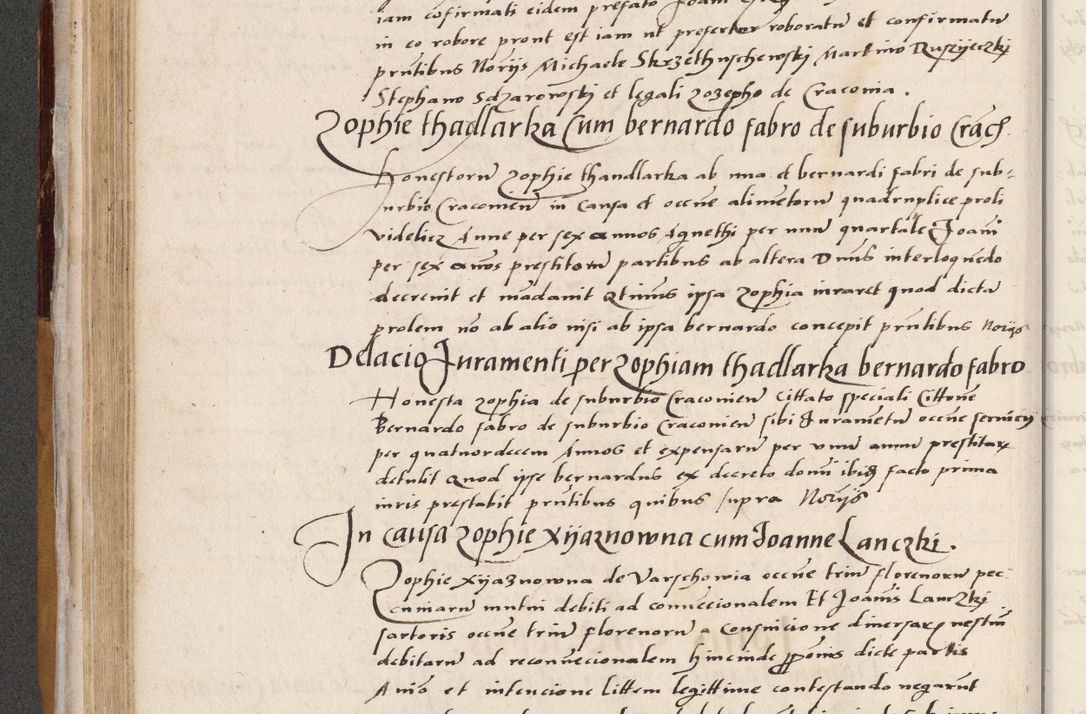 iam cōfirmati eidem prefato Joani
in eo robore pront est iam ut profertur roboratū et confirmatū
pn̄tibus Norijs Michaele Skrzethuschewskj Martino Ruszijeczkj
Stephano Sdzarowskj et legali Jozepho de Craconia .
Zophie thadlarka Cum bernardo fabro de suburbio Crac̄
Honestorū zophie thandlarka ab una et bernardi fabri de sub-
urbio Cracomēn in causa et occn̄e alimētorū quadruplice proli
videlicz Anne per sex annos Agnethi per unū quartale Joani
per sex annos prestitorū partibus ab altera Dnūs interloquēdo
decrenit et mādanit qtinus ipsa zophia iuraret quod dictā
prolem nō ab alio nisi ab ipsa bernardo concepit pn̄tibus Norijs
Delacio Juramenti per zophiam thadlarka bernardo fabro
Honesta zophia de suburbio Cracomēn Cittato speciali Cittōne
Bernardo fabro de suburbio Cracomēn sibi Juramētū occn̄e seruicij
per quatuordecem Annos et expensarū per unū annū prestitarȝ
detulit Quod ipse bernardus ex decreto domī ibiqȝ facto prima
iuris prestabit pn̄tibus quibus supra Norijs
In causa zophie Xijaznowna cum Joanne Lanczkj .
Zophie Xijaznowna de Varschowia occn̄e triū florenorū pec
cuniarū mutui debiti ad conuēcionalem Et Joānis Lanczkj
sartoris occn̄e triū florenorū a Consuicione diuersarȝ uestiū
debitarū ad reconuēcionalem hincinde ꝓpōnis dicte partis
Anīo et intencione littem legittime contestando negarūt